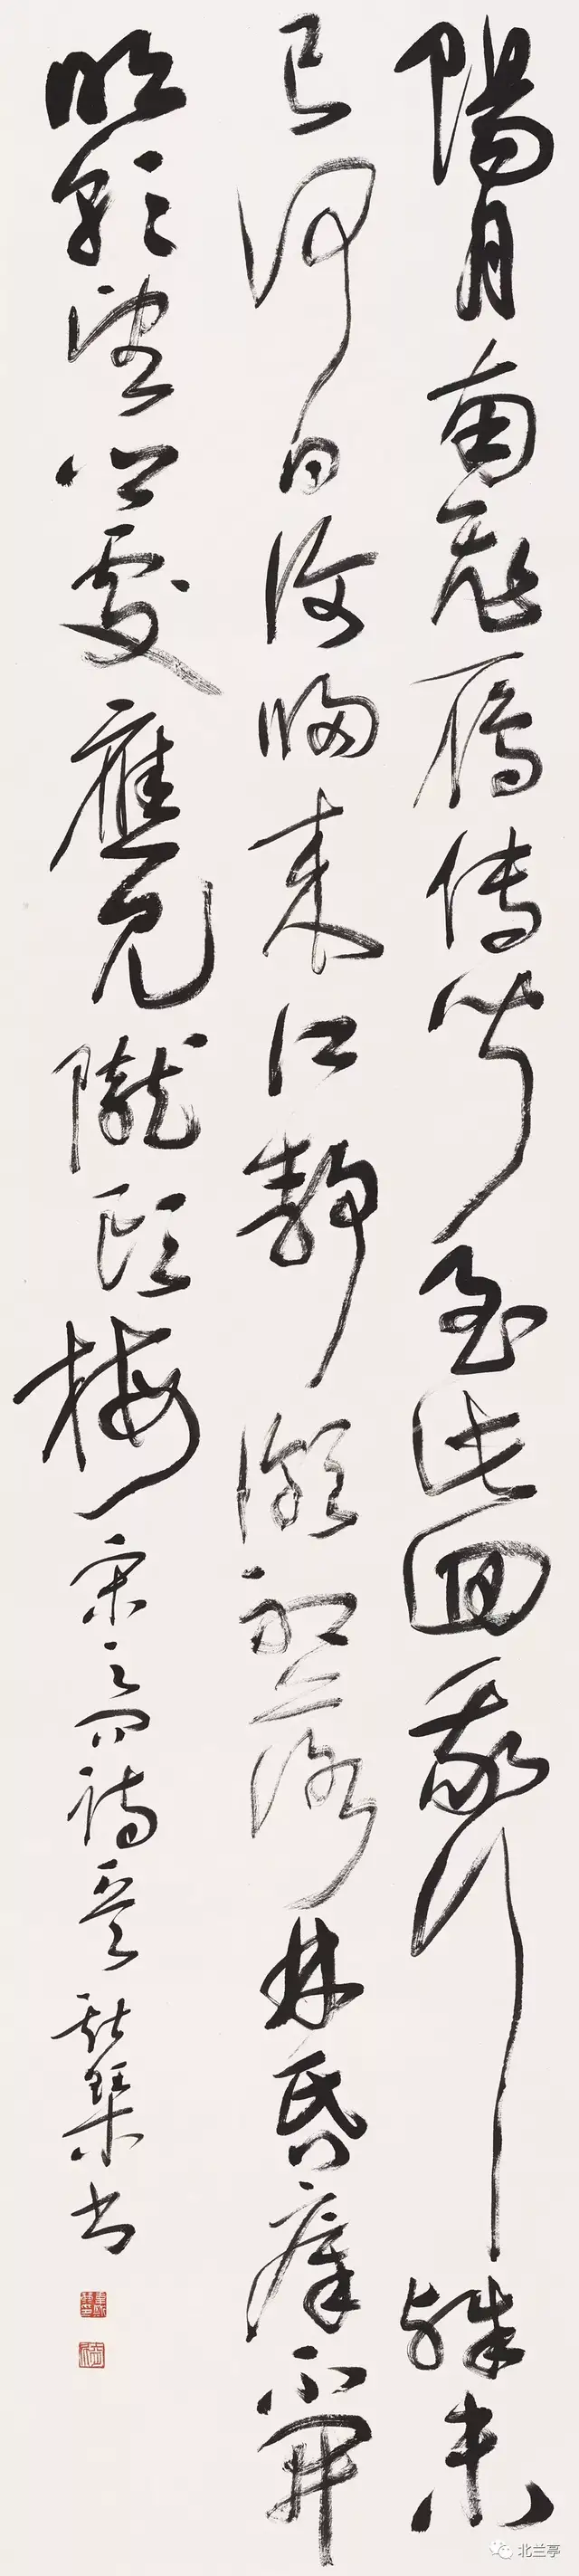 陽月南飛雁傳聞至此回我行殊未
已何日復歸來江靜潮初落林昏瘴不開
明朝望鄉處應見隴頭梅宋之問詩一首
書
北兰亭